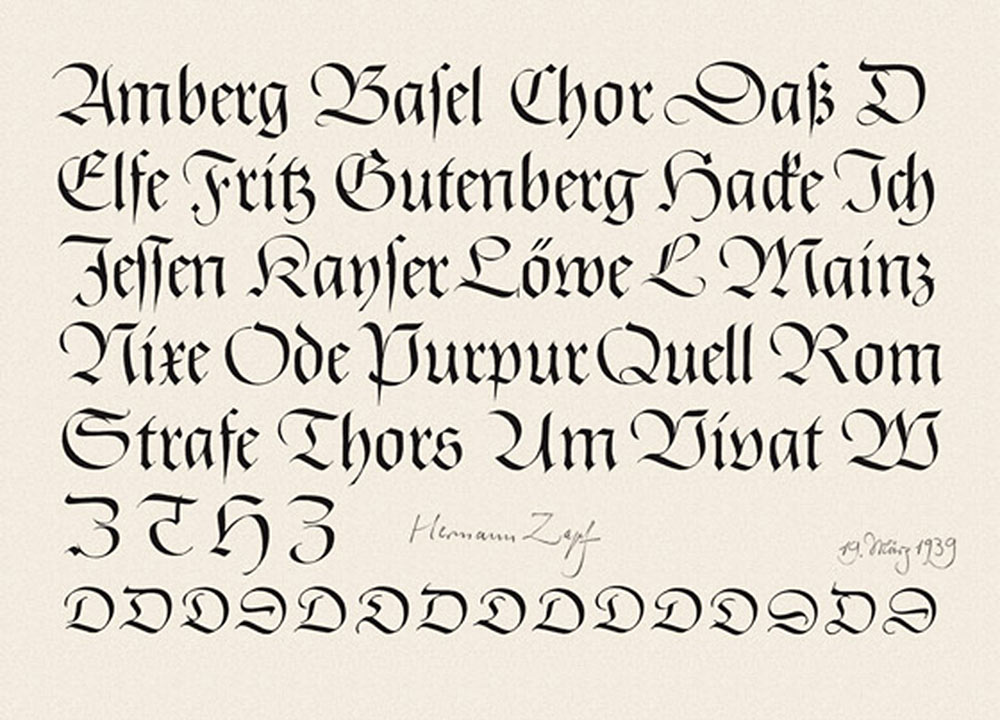 Amberg Baſel Chor Daß D
Elfe Fritz Gutenberg Hacke Ich
Jeſſen Kayſer Löwe L Mainz
Nixe Ode Purpur Quell Rom
Strafe Thors Um Vivat W
Z T H Z Hermann Zapf 19. März 1939
D D D D D D D D D D D D D D D